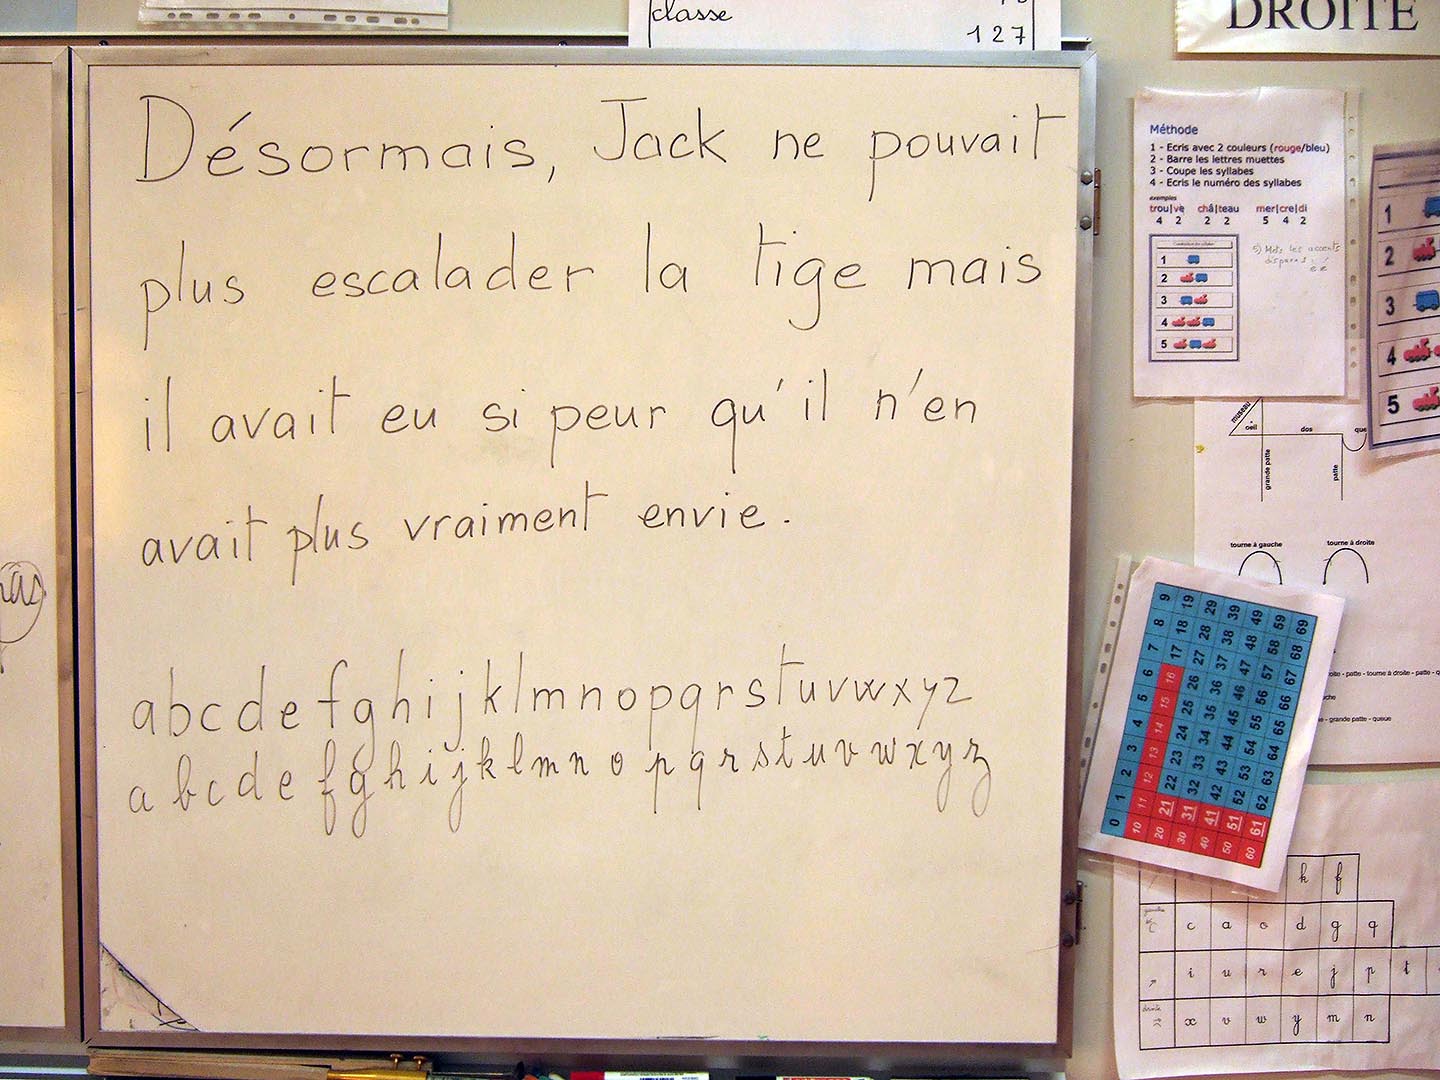 classe
127
DROITE
Désormais, Jack ne pouvait
plus escalader la tige mais
il avait eu si peur qu'il n'en
avait plus vraiment envie.
abcdefghijklmnopqrstuvwxyz
abcdefghijklmnopqrstuvwxyz
Méthode
1 - Ecris avec 2 couleurs (rouge/bleu)
2 - Barre les lettres muettes
3 - Coupe les syllabes
4 - Ecris le numéro des syllabes
exemples
trou|ve châ|teau mer|cre|di
4 2 2 2 5 4 2
5) Mets les accents
1
2
3
4
5
1
2
3
4
5
museau
oeil dos
grande patte
patte
tourne à gauche tourne à droite
- patte - tourne à droite - patte -
- grande patte - queue
0 1 2 3 4 5 6 7 8 9
10 11 12 13 14 15 16 17 18 19
20 21 22 23 24 25 26 27 28 29
30 31 32 33 34 35 36 37 38 39
40 41 42 43 44 45 46 47 48 49
50 51 52 53 54 55 56 57 58 59
60 61 62 63 64 65 66 67 68 69
k f
c a o d g q
i u r e j p t
droite x v w y m n